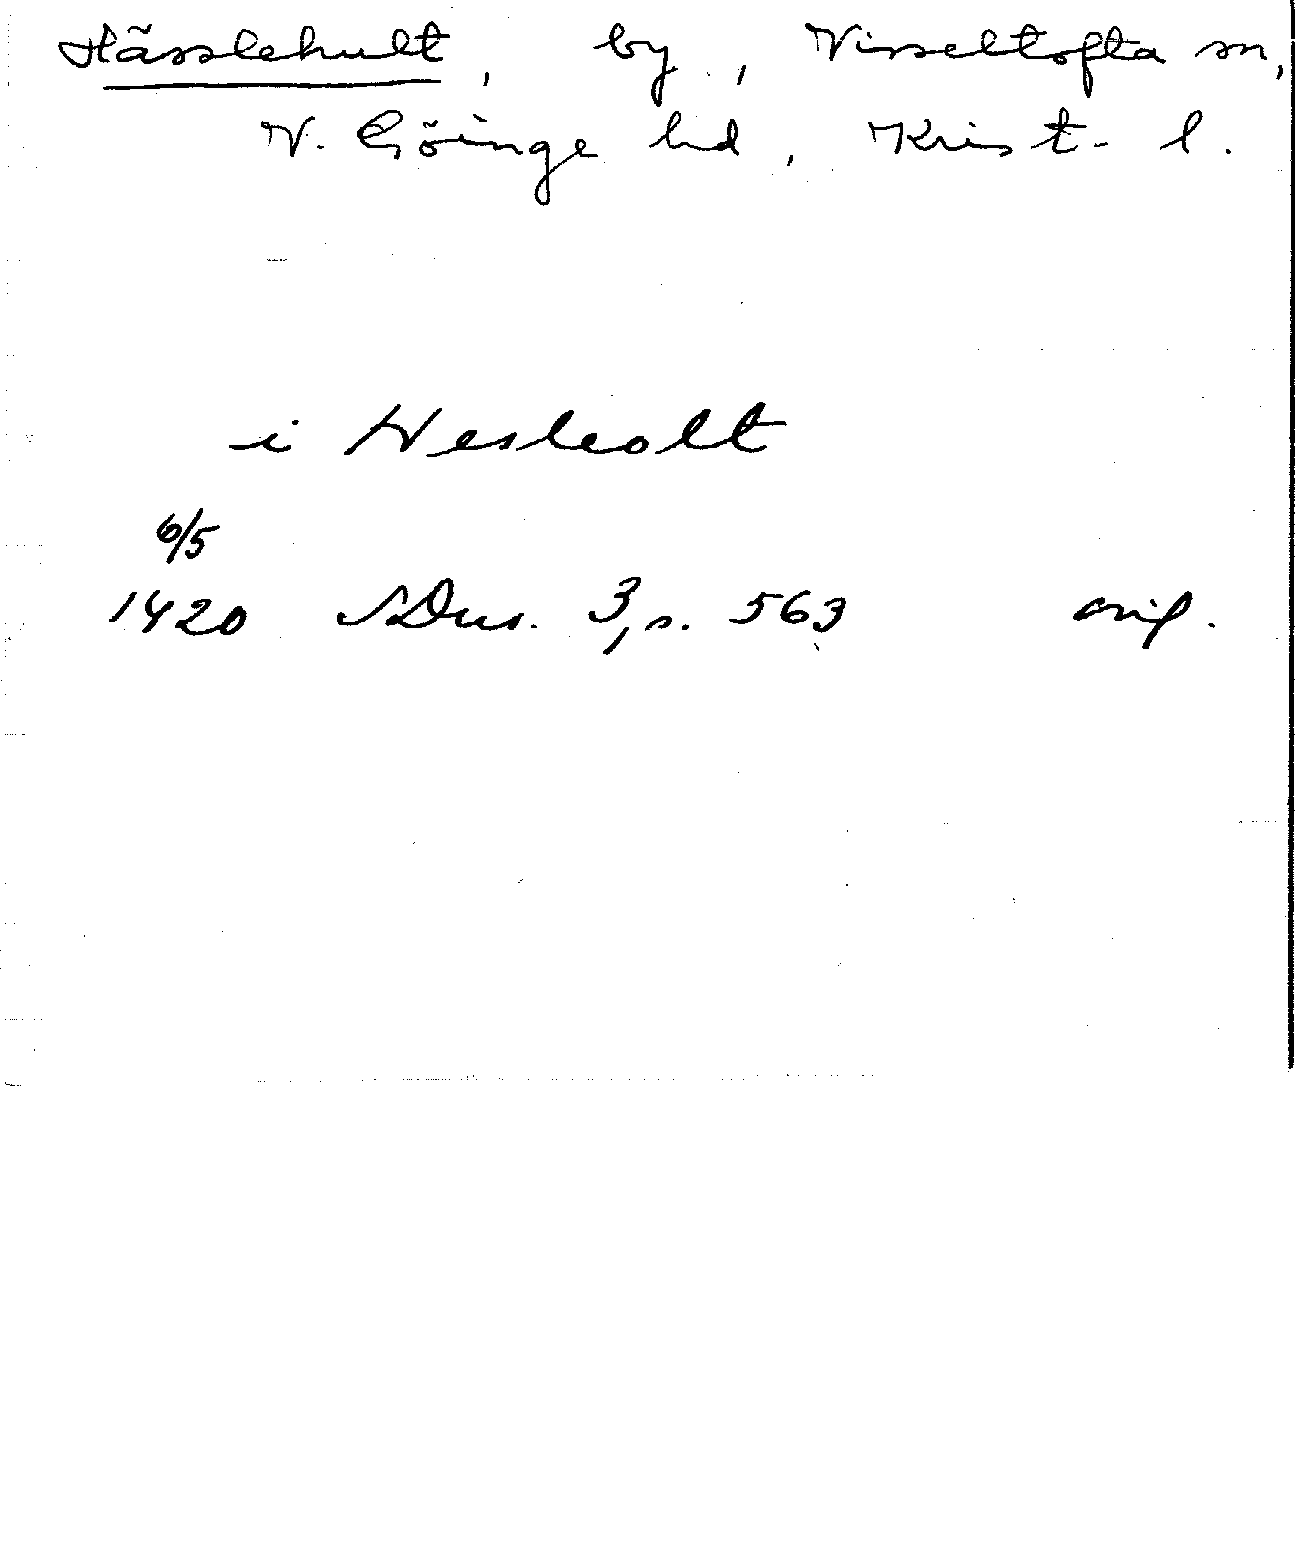 Hässlehult, by, Visseltofta sn,
V. Göinge hd, Krist. l.
i Hesleolt
6/5
1420 SDns. 3, s. 563 orig.